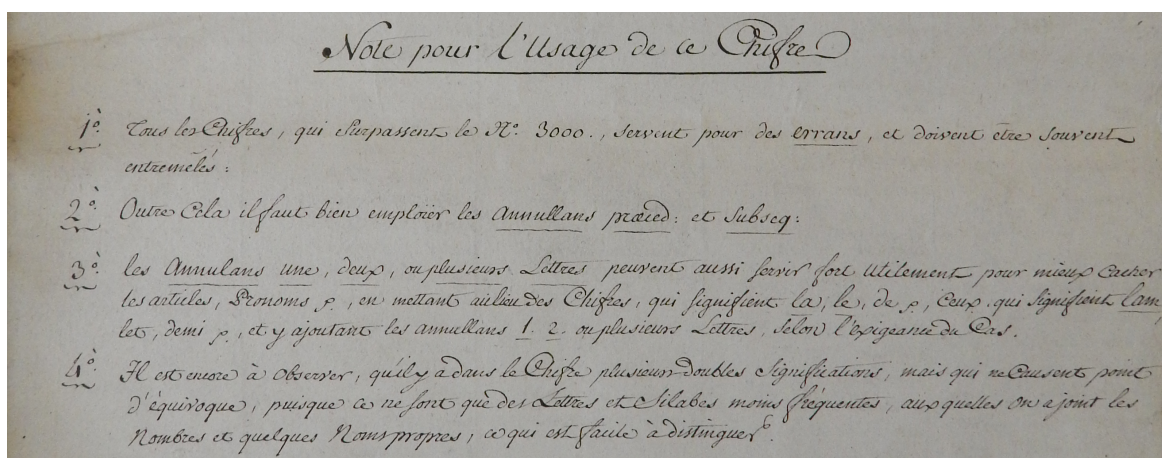 Note pour l'Usage de ce Chifre
1º. Tous les Chifres, qui surpassent le Nº. 3000., servent pour des errans, et doivent etre souvent
entremelés:
2º. Outre Cela il faut bien emploïer les Annullans præced: et Subseq:
3º. les Annulans une, deux, ou plusieurs Lettres peuvent aussi servir fort utilement pour mieux cacher
les articles, Pronoms p, en mettant aulieu des Chifres, qui signifient la, le, de p, ceux qui signifient lam,
let, demi p, et y ajoutant les annullans 1. 2. ou plusieurs Lettres, selon l'exigeance du Cas.
4º. Il est encore à observer, qu'il y a dans le Chifre plusieurs doubles significations, mais qui ne Causent point
d'équivoque, puisque ce ne sont que des Lettres et Silabes moins fréquentes, aux quelles on a joint les
Nombres et quelques Noms propres, ce qui est facile à distinguer.